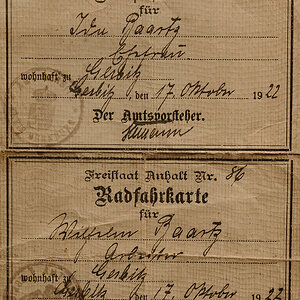 für
Ida Baartz
Ehefrau
wohnhaft zu Gerbitz
Gerbitz, den 17. Oktober 1922
Der Amtsvorsteher.
Freistaat Anhalt Nr. 86
Radfahrkarte
für
Wilhelm Baartz
Arbeiter
wohnhaft zu Gerbitz
Gerbitz, den 17. Oktober 1922